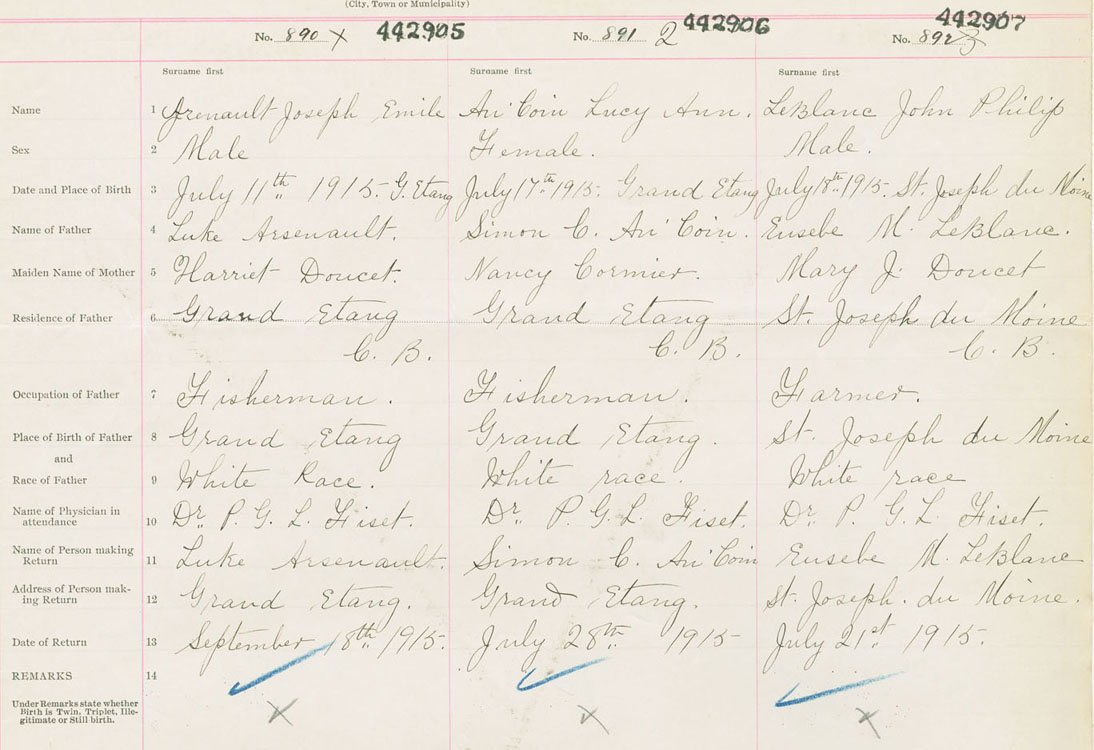 (City, Town or Municipality)
No. 890 X 442905 No. 891 2 442906 No. 892 3 442907
Surname first Surname first Surname first
Name 1 Arsenault Joseph Emile Au'Coin Lucy Ann. LeBlanc John Philip
Sex 2 Male Female. Male.
Date and Place of Birth 3 July 11th 1915- G. Etang July 17th 1915- Grand Etang July 18th 1915- St. Joseph du Moine
Name of Father 4 Luke Arsenault. Simon C. Au'Coin. Eusebe M. LeBlanc.
Maiden Name of Mother 5 Harriet Doucet. Nancy Cormier. Mary J. Doucet
Residence of Father 6 Grand Etang Grand Etang St. Joseph du Moine
C. B. C. B. C. B.
Occupation of Father 7 Fisherman. Fisherman. Farmer.
Place of Birth of Father 8 Grand Etang Grand Etang. St. Joseph du Moine
and
Race of Father 9 White Race. White race. White race
Name of Physician in
attendance 10 Dr. P. G. L. Fiset. Dr. P. G. L. Fiset. Dr. P. G. L. Fiset.
Name of Person making
Return 11 Luke Arsenault. Simon C. Au'Coin Eusebe M. LeBlanc
Address of Person mak-
ing Return 12 Grand Etang. Grand Etang. St. Joseph. du Moine.
Date of Return 13 September 18th 1915. July 28th 1915- July 21st 1915.
REMARKS 14
Under Remarks state whether
Birth is Twin, Triplet, Ille-
gitimate or Still birth. X X X